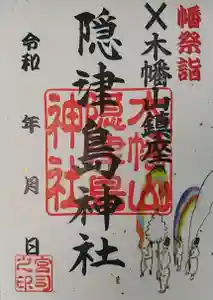 幡祭詣
木幡山鎮座
隠津島神社
令和 年 月 日
木幡山
隠津島
神社
宮司之印